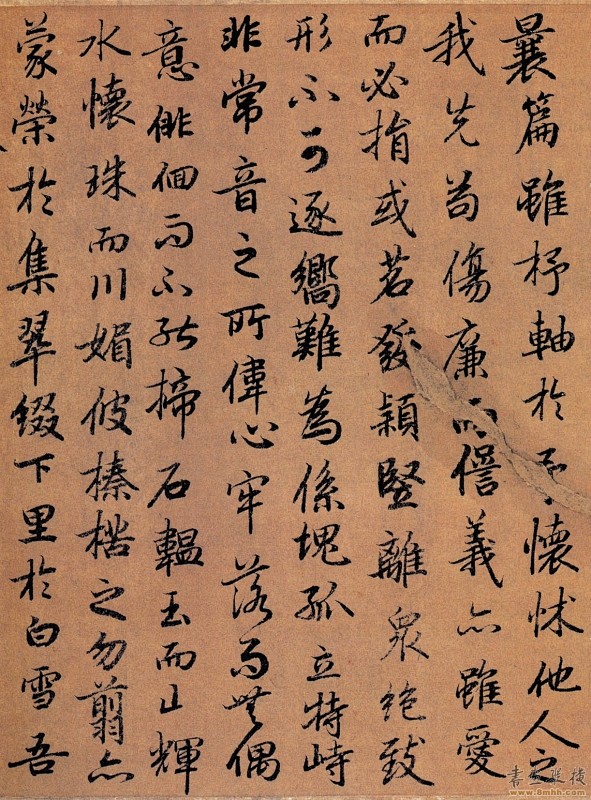 曩篇雖杼軸於予懷怵他人之
我先苟傷廉而諐義亦雖愛
而必捐或苕發穎竪離衆絶致
形不可逐嚮難為係塊孤立特峙
非常音之所偉心牢落而無偶
意俳佪而不能揥石韞玉而山輝
水懷珠而川媚彼榛楛之勿翦亦
蒙榮於集翠綴下里於白雪吾
www.8mhh.com